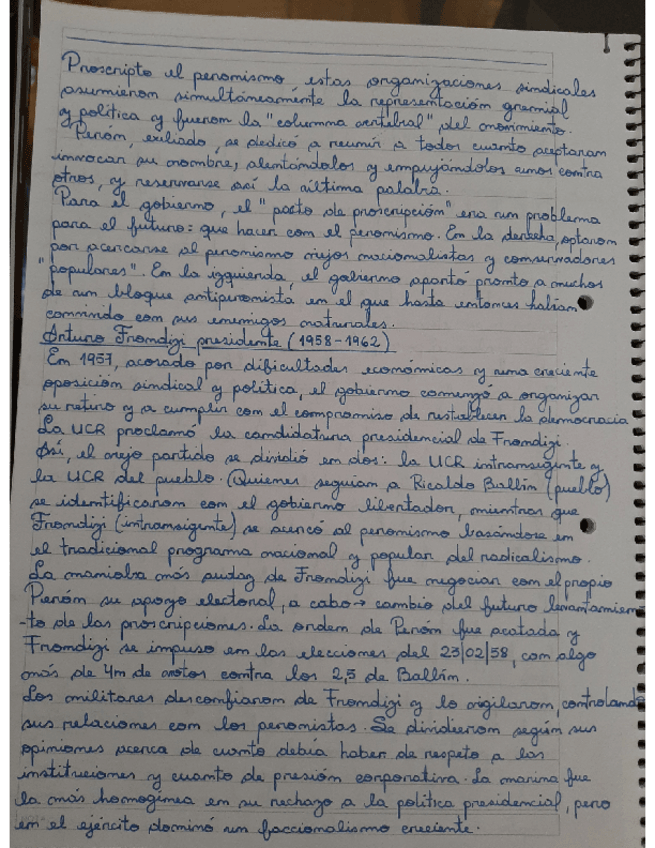 Proscripto el peronismo estas organizaciones sindicales
asumieron simultáneaménte la representación gremial
y política y fueron la "columna vertebral" del movimiento.
Perón, exiliado, se dedicó a reunir a todos cuanto aceptaran
invocar su nombre, alentándolos y empujándolos unos contra
otros, y reservarse así la última palabra.
Para el gobierno, el "pacto de proscripción" era un problema
para el futuro: que hacer con el peronismo. En la derecha, optaron
por acercarse al peronismo viejos nacionalistas y conservadores
"populares". En la izquierda, el gobierno apartó pronto a muchos
de un bloque antiperonista en el que hasta entonces habían
convivido con sus enemigos naturales.
Arturo Frondizi presidente (1958-1962)
En 1957, acosado por dificultades económicas y una creciente
oposición sindical y política, el gobierno comenzó a organizar
su retiro y a cumplir con el compromiso de restablecer la democracia
La UCR proclamó la candidatura presidencial de Frondizi.
Así, el viejo partido se dividió en dos: la UCR intransigente y
la UCR del pueblo. Quienes seguían a Ricaldo Ballín (pueblo)
se identificaron con el gobierno libertador, mientras que
Frondizi (intransigente) se acercó al peronismo basándose en
el tradicional programa nacional y popular del radicalismo.
La maniobra más audaz de Frondizi fue negociar con el propio
Perón su apoyo electoral, a cabo → cambio del futuro levantamien-
-to de las proscripciones. La orden de Perón fue acatada y
Frondizi se impuso en las elecciones del 23/02/58, con algo
más de 4m de votos contra los 2,5 de Ballín.
Los militares desconfiaron de Frondizi y lo vigilaron, controlando
sus relaciones con los peronistas. Se dividieron según sus
opiniones acerca de cuanto debía haber de respeto a las
instituciones y cuanto de presión corporativa. La marina fue
la más homogénea en su rechazo a la política presidencial, pero
en el ejército dominó un faccionalismo creciente.